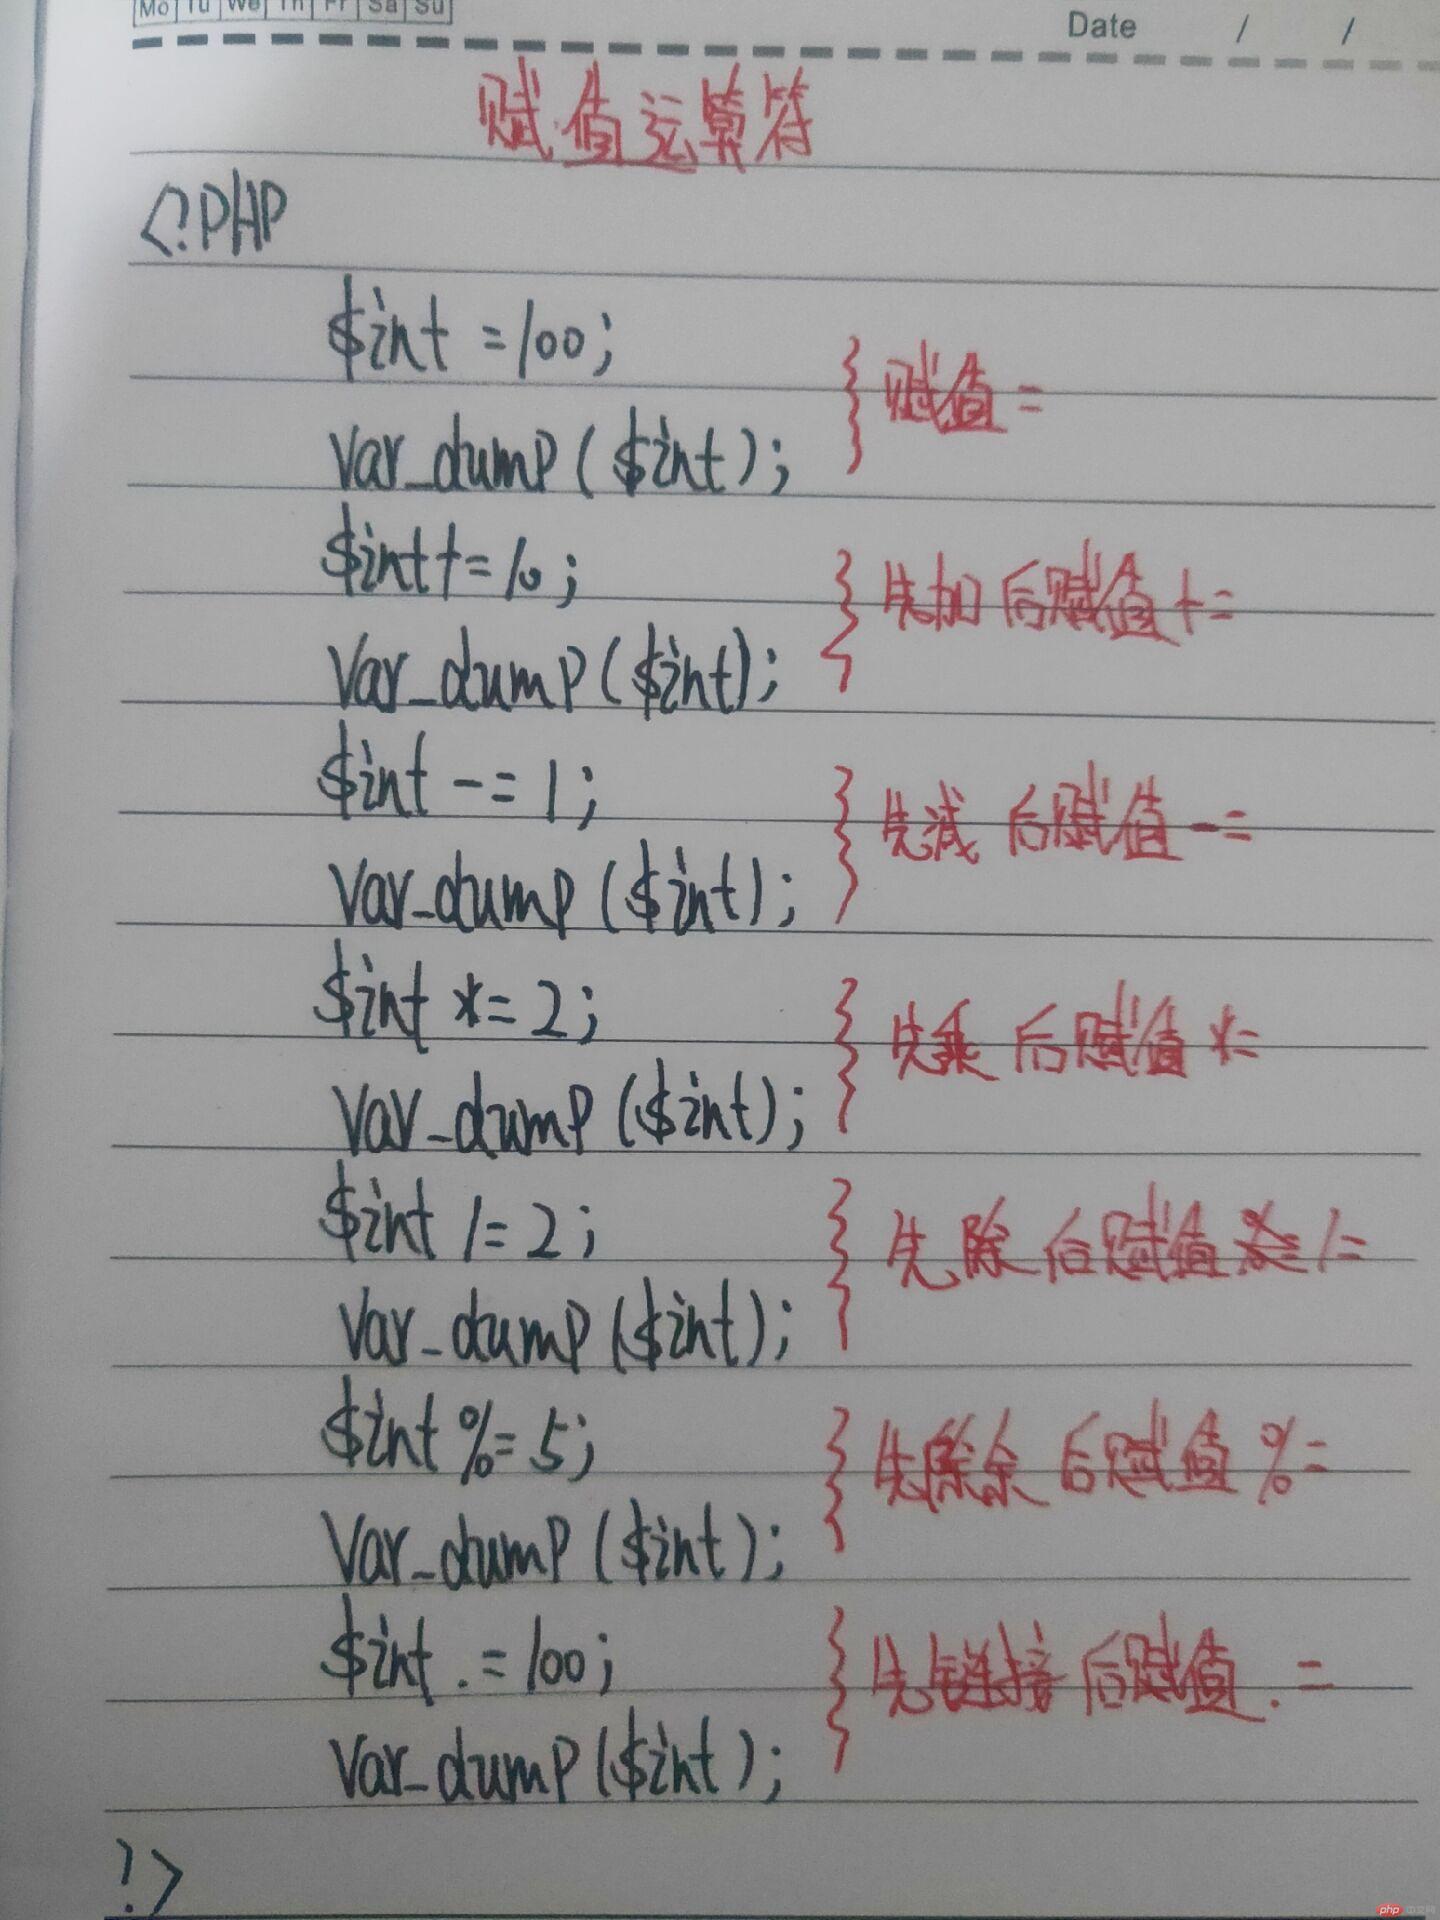 Mo Tu We Th Fr Sa Su
Date / /
赋值运算符
<?PHP
$int =100;
赋值 =
var_dump($int);
$int+=10;
先加后赋值 +=
var_dump($int);
$int -= 1;
先减后赋值 -=
var_dump($int);
$int *= 2;
先乘后赋值 *=
var_dump($int);
$int /= 2;
先除后赋值 /=
var_dump($int);
$int %= 5;
先除余后赋值 %=
var_dump($int);
$int .=100;
先链接后赋值 .=
var_dump($int);
?>
php 中文网